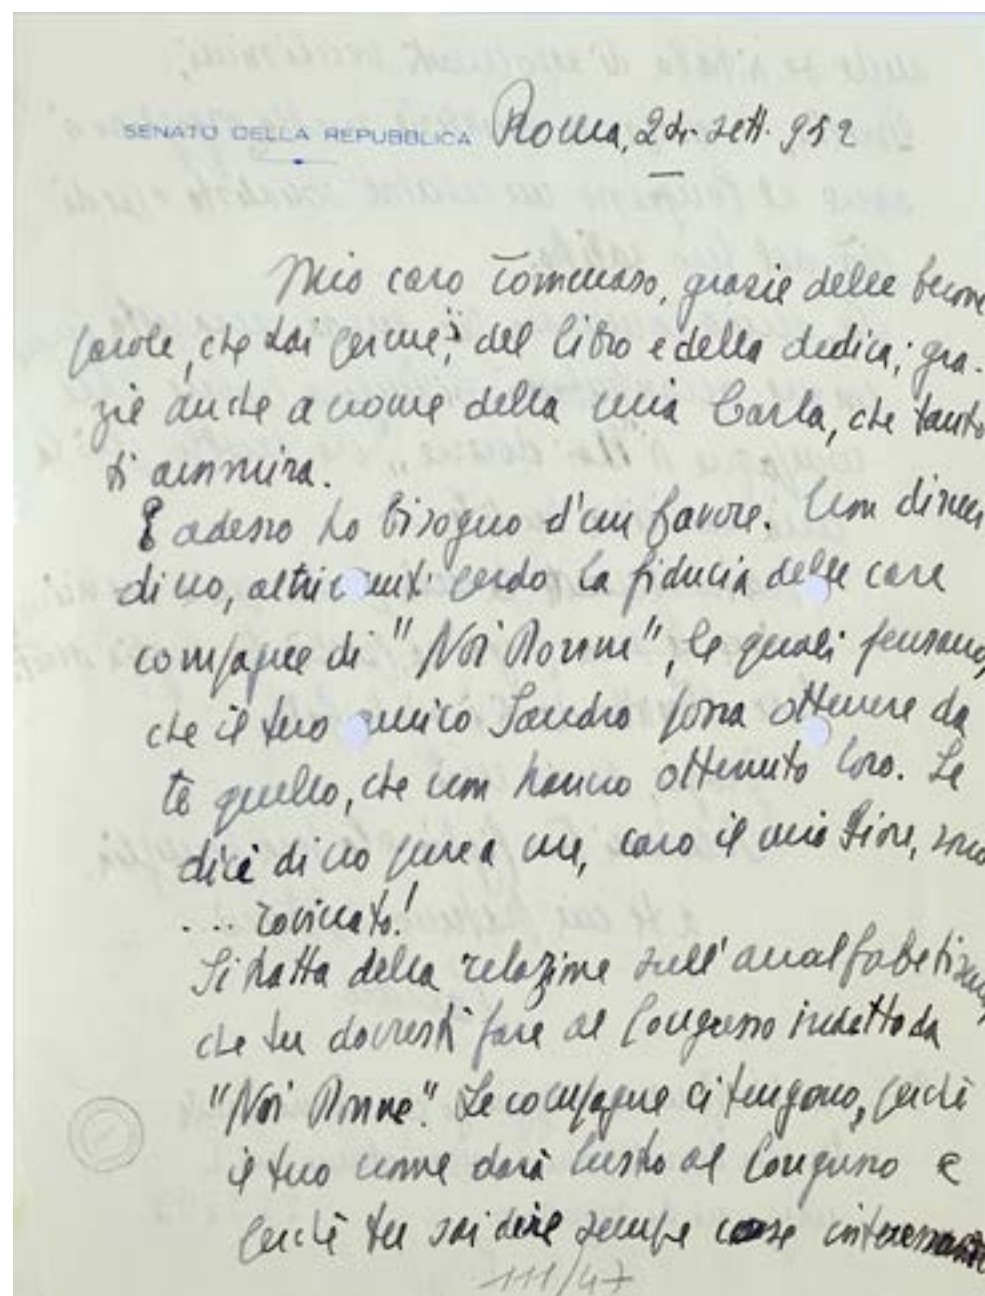 SENATO DELLA REPUBBLICA Roma, 24. sett. 952
Mio caro Tommaso, grazie delle buone
parole, che hai per me; del libro e della dedica; gra-
zie anche a nome della mia Carla, che tanto
ti ammira.
E adesso ho bisogno d'un favore. Non dirmi
di no, altrimenti perdo la fiducia delle care
compagne di "Noi Donne", le quali pensano,
che il tuo amico Sandro possa ottenere da
te quello, che non hanno ottenuto loro. Se
dici di no pure a me, caro il mio Fiore, sono
.... rovinato!
Si tratta della relazione sull'analfabetismo,
che tu dovresti fare al Congresso indetto da
"Noi Donne". Le compagne ci tengono, perchè
il tuo nome darà lustro al Congresso e
perchè tu sai dire sempre cose interessanti
111/47